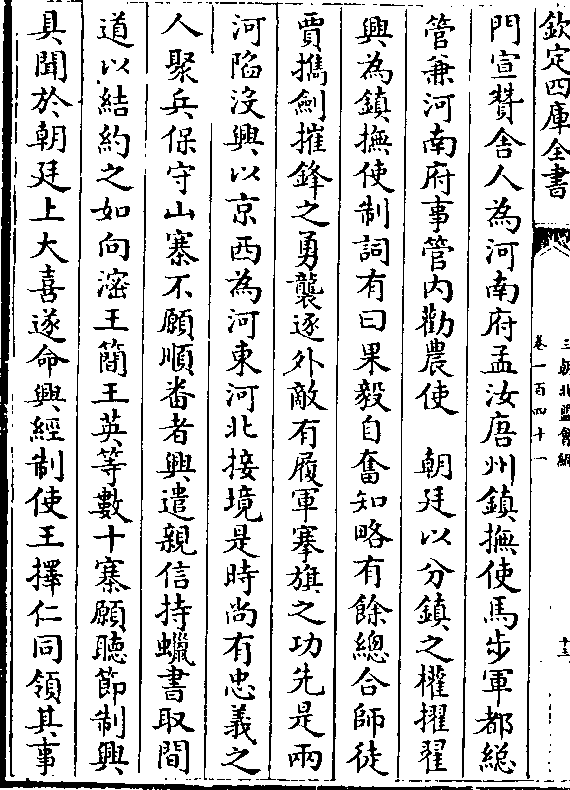 欽定四庫全書
三朝北盟會編
卷一百四十一
門宣贊舍人為河南府孟汝唐州鎮撫使馬步軍都總
管兼河南府事管內勸農使　朝廷以分鎮之權擢翟
興為鎮撫使制詞有曰果毅自奮知略有餘總合師徒
賈擕劍摧鋒之勇襲逐外敵有履軍搴旗之功先是兩
河陷沒興以京西為河東河北接境是時尚有忠義之
人聚兵保守山寨不願順番者興遣親信持蠟書取間
道以結約之如向宻王簡王英等數十寨願聽節制興
具聞於朝廷上大喜遂命興經制使王擇仁同領其事